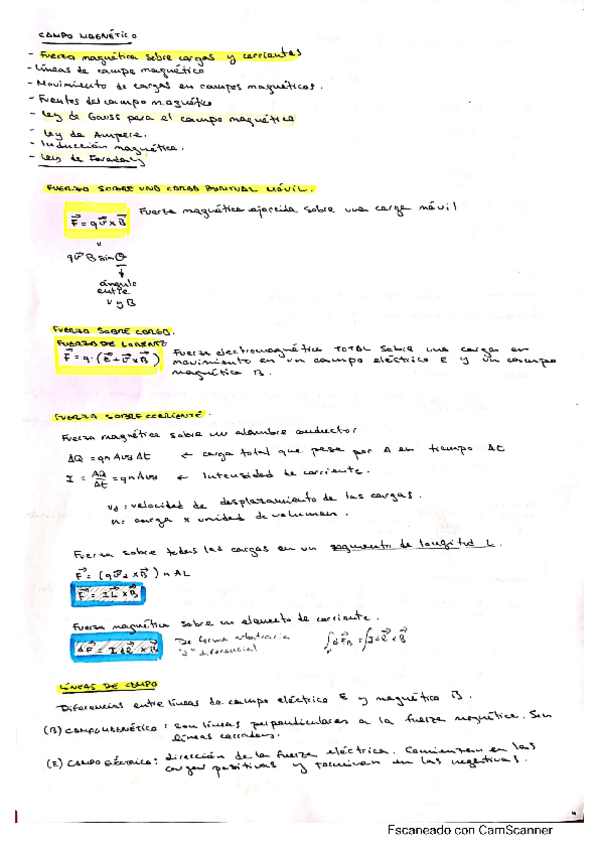 CAMPO MAGNÉTICO
- Fuerza magnética sobre cargas y corrientes
- Líneas de campo magnético
- Movimiento de cargas en campos magnéticos.
- Fuentes del campo magnético
- Ley de Gauss para el campo magnética
- Ley de Ampere.
- Inducción magnética.
- Ley de Faraday
FUERZA SOBRE UNA CARGA PUNTUAL MÓVIL.
F⃗ = q v⃗ x B⃗
Fuerza magnética ejercida sobre una carga móvil
qv B sin θ
ángulo
entre
v y B
FUERZA SOBRE CARGA.
FUERZA DE LORENTZ
F⃗ = q · (E⃗ + v⃗ x B⃗)
Fuerza electromagnética TOTAL sobre una carga en
movimiento en un campo eléctrico E y un campo
magnético B.
FUERZA SOBRE CORRIENTE.
Fuerza magnética sobre un alambre conductor
ΔQ = qn A vd Δt ← carga total que pasa por A en tiempo Δt
I = ΔQ/Δt = qn A vd ← Intensidad de corriente.
vd: velocidad de desplazamiento de las cargas.
n: carga x unidad de volumen.
Fuerza sobre todas las cargas en un segmento de longitud L.
F⃗ = (q v⃗d x B⃗) n A L
F⃗ = I L⃗ x B⃗
Fuerza magnética sobre un elemento de corriente.
dF⃗ = I dℓ⃗ x B⃗
De forma arbitraria
"d" diferencial
∫ dF⃗B = ∫ I dℓ⃗ x B⃗
LÍNEAS DE CAMPO
Diferencias entre líneas de campo eléctrico E y magnético B.
(B) CAMPO MAGNÉTICO: son líneas perpendiculares a la fuerza magnética. Son
líneas cerradas.
(E) CAMPO ELÉCTRICO: dirección de la fuerza eléctrica. Comienzan en las
cargas positivas y terminan en las negativas.
Escaneado con CamScanner